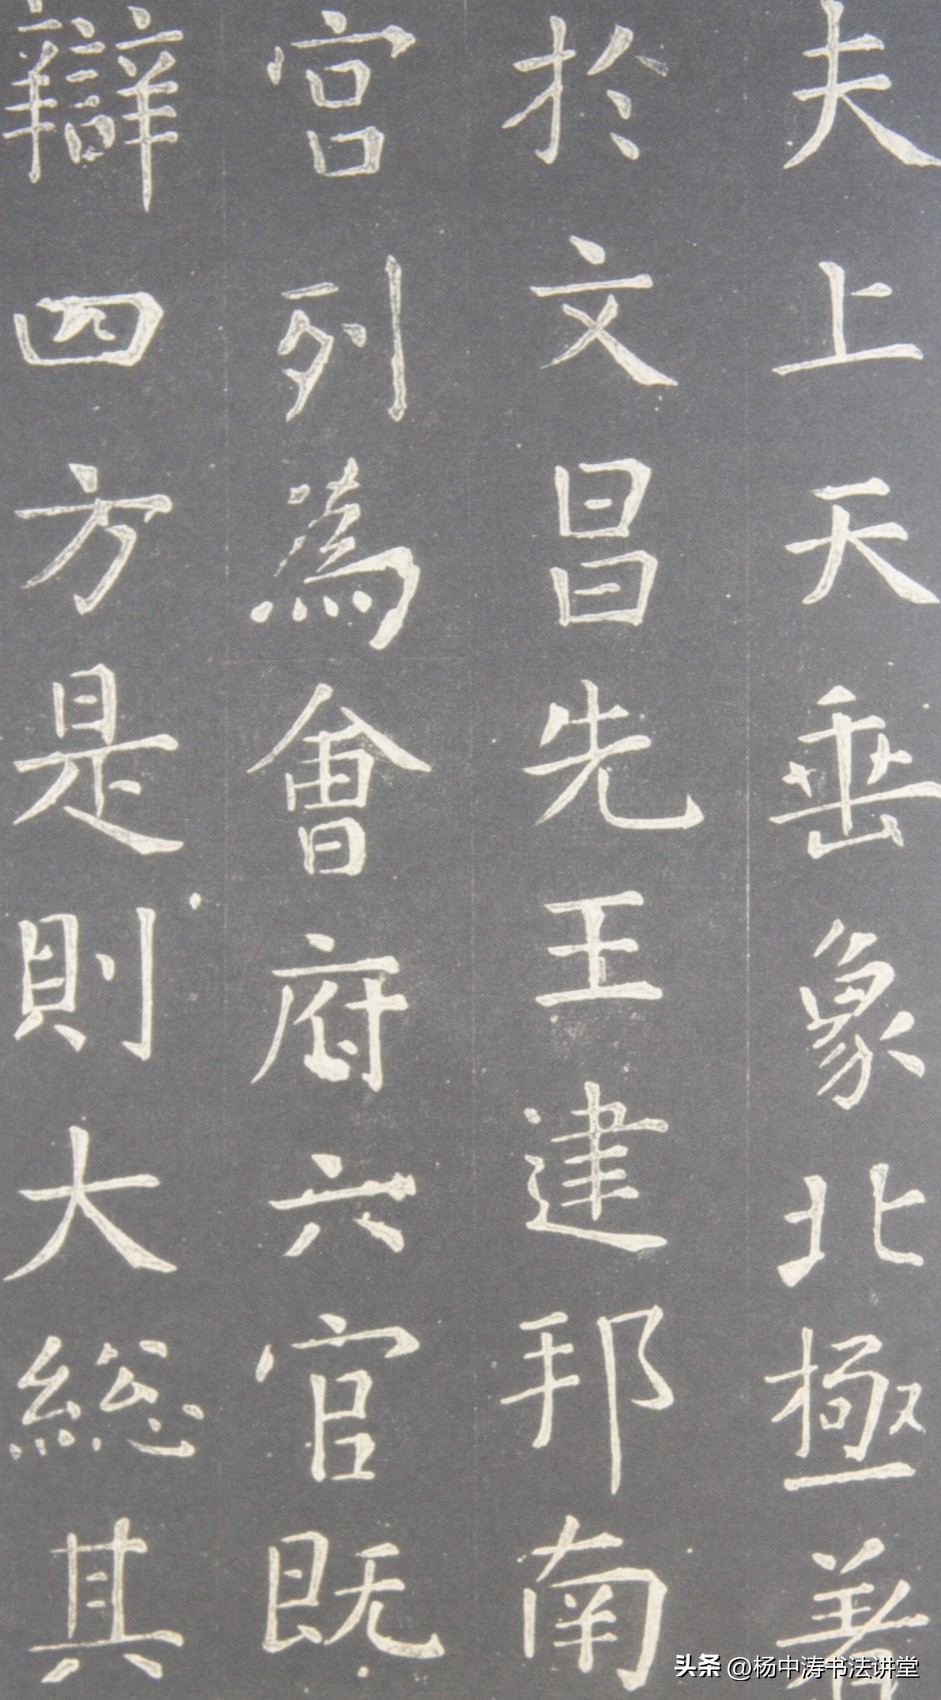 夫上天垂象北極著
於文昌先王建邦南
宫列為會府六官既
辯四方是則大総其
头条 @杨中涛书法讲堂